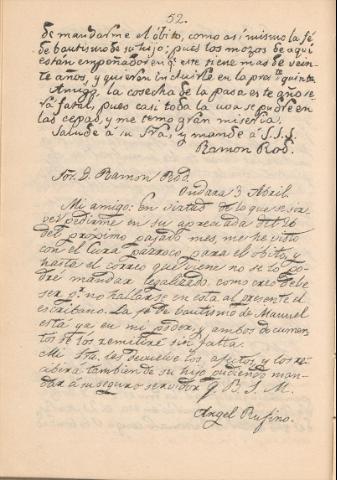 52.
de mandarme el óbito, como asi mismo la fé
de bautismo de su hijo; pues los mozos de aqui
están empeñados en qe. este tiene mas de vein
te años, y quieren incluirle en la prox. quinta.
Amigo, la cosecha de la pasa este año se
rá fatal, pues casi toda la uva se pudre en
las cepas, y me temo gran miseria.
Salude á su Sra, y mande á S.S.S.
Ramon Rod.
Sor. D. Ramon Rod.
Ondara 3 Abril.
Mi amigo: En virtud de lo que se sir
ve pedirme en su apreciada del 26
del próximo pasado mes, me he visto
con el Cura párroco para el óbito, y
hasta el correo que viene no se lo po
dré mandar legalizado, como creo debe
ser pr. no hallarse en esta al presente el
escribano. La fé de bautismo de Manuel
esta ya en mi poder, y ambos documen
tos se los remitiré sin falta.
Mi Sra. les devuelve los afectos, y los re
cibirá tambien de su hijo pudiendo man
dar á su seguro servidor Q. B. S. M.
Angel Rufino.